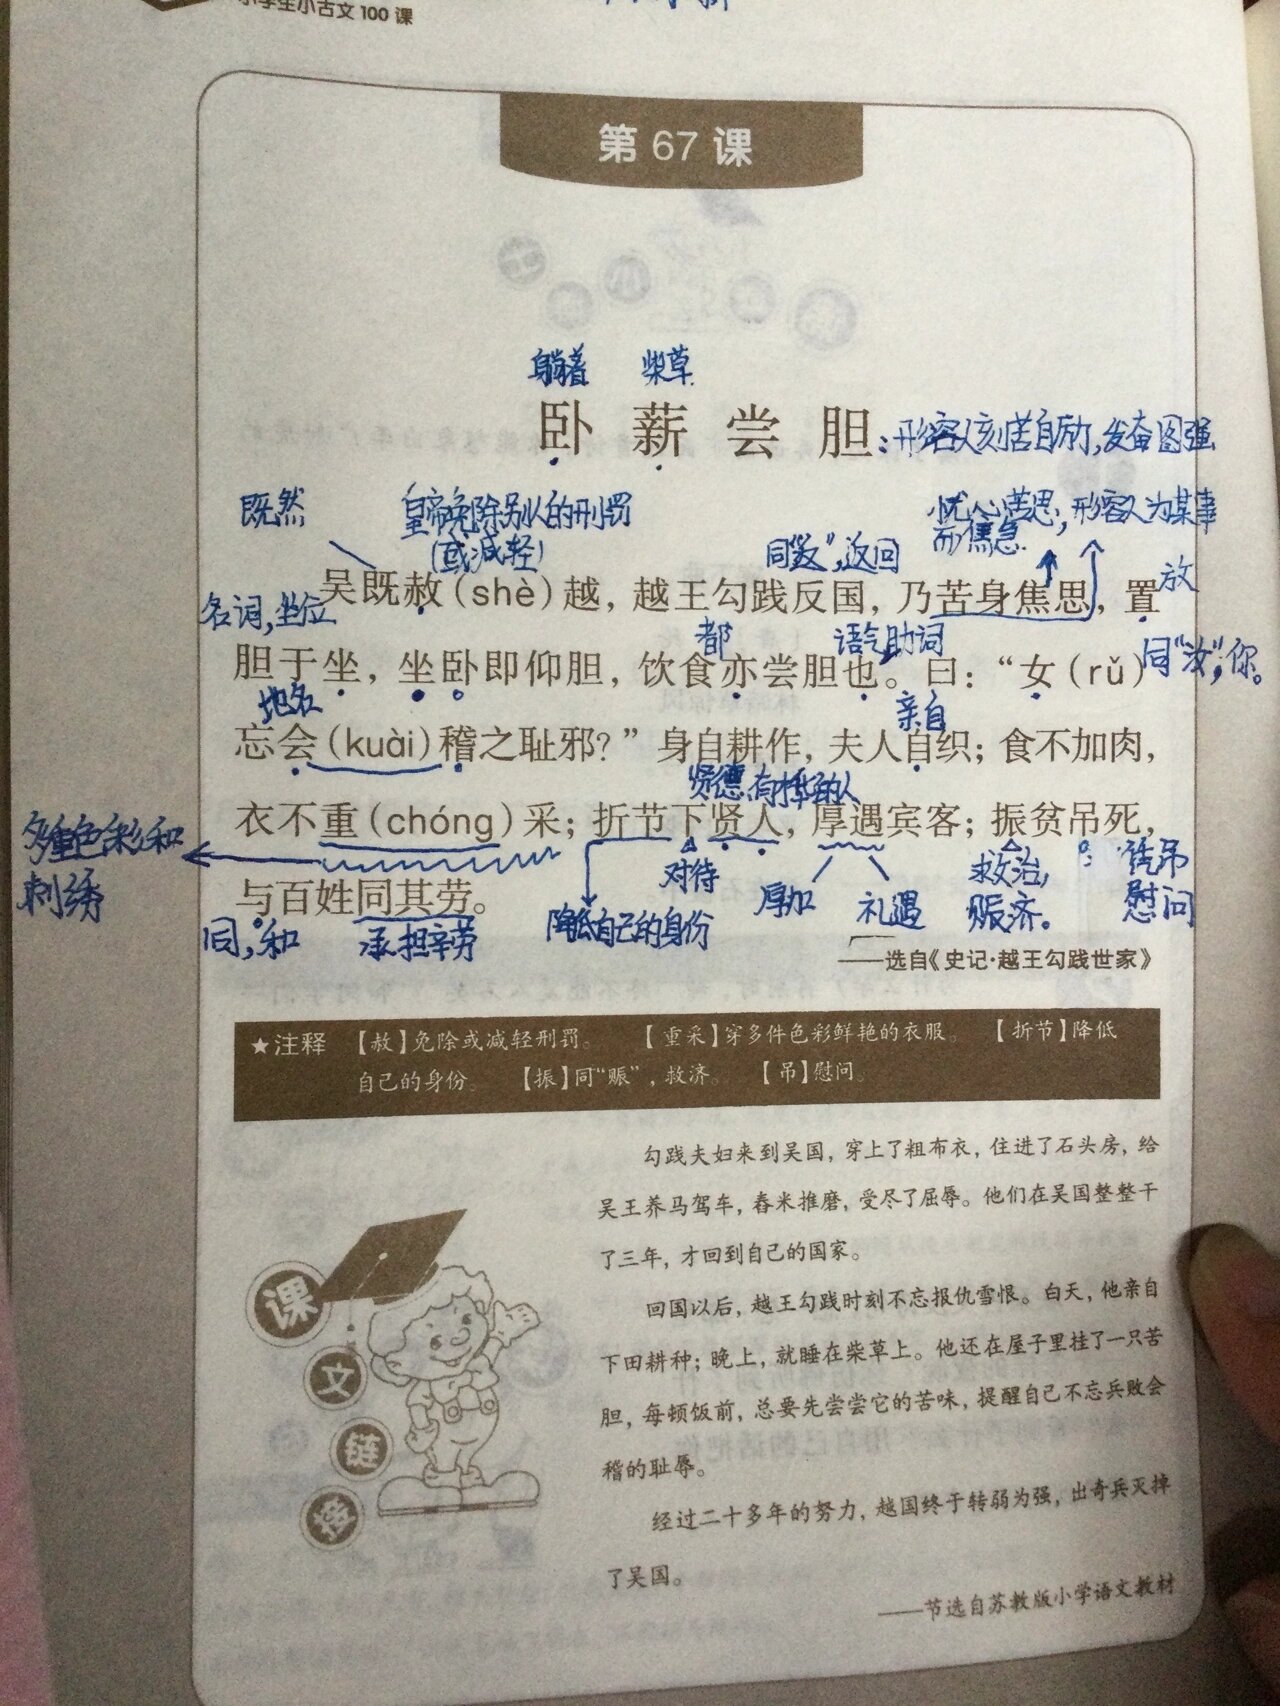 小学生小古文100课
第67课
躺着 柴草
卧薪尝胆:形容人刻苦自励,发奋图强
既然 皇帝免除别人的刑罚 忧心苦思,形容人为某事
(或减轻) 同“返”,返回 而焦急.
吴既赦(shè)越,越王勾践反国,乃苦身焦思,置
放
名词,坐位 都 语气助词
胆于坐,坐卧即仰胆,饮食亦尝胆也。曰:“女(rǔ)
同“汝”,你。
地名 亲自
忘会(kuài)稽之耻邪?”身自耕作,夫人自织;食不加肉,
贤德,有才华的人
衣不重(chóng)采;折节下贤人,厚遇宾客;振贫吊死,
多重色彩和
刺绣
对待 厚加 礼遇 救治, 凭吊
赈济。 慰问
与百姓同其劳。
同,和 承担辛劳 降低自己的身份
——选自《史记·越王勾践世家》
★注释 【赦】免除或减轻刑罚。 【重采】穿多件色彩鲜艳的衣服。 【折节】降低
自己的身份。 【振】同“赈”,救济。 【吊】慰问。
勾践夫妇来到吴国,穿上了粗布衣,住进了石头房,给
吴王养马驾车,舂米推磨,受尽了屈辱。他们在吴国整整干
了三年,才回到自己的国家。
回国以后,越王勾践时刻不忘报仇雪恨。白天,他亲自
下田耕种;晚上,就睡在柴草上。他还在屋子里挂了一只苦
胆,每顿饭前,总要先尝尝它的苦味,提醒自己不忘兵败会
稽的耻辱。
经过二十多年的努力,越国终于转弱为强,出奇兵灭掉
了吴国。
——节选自苏教版小学语文教材
课
文
链
接